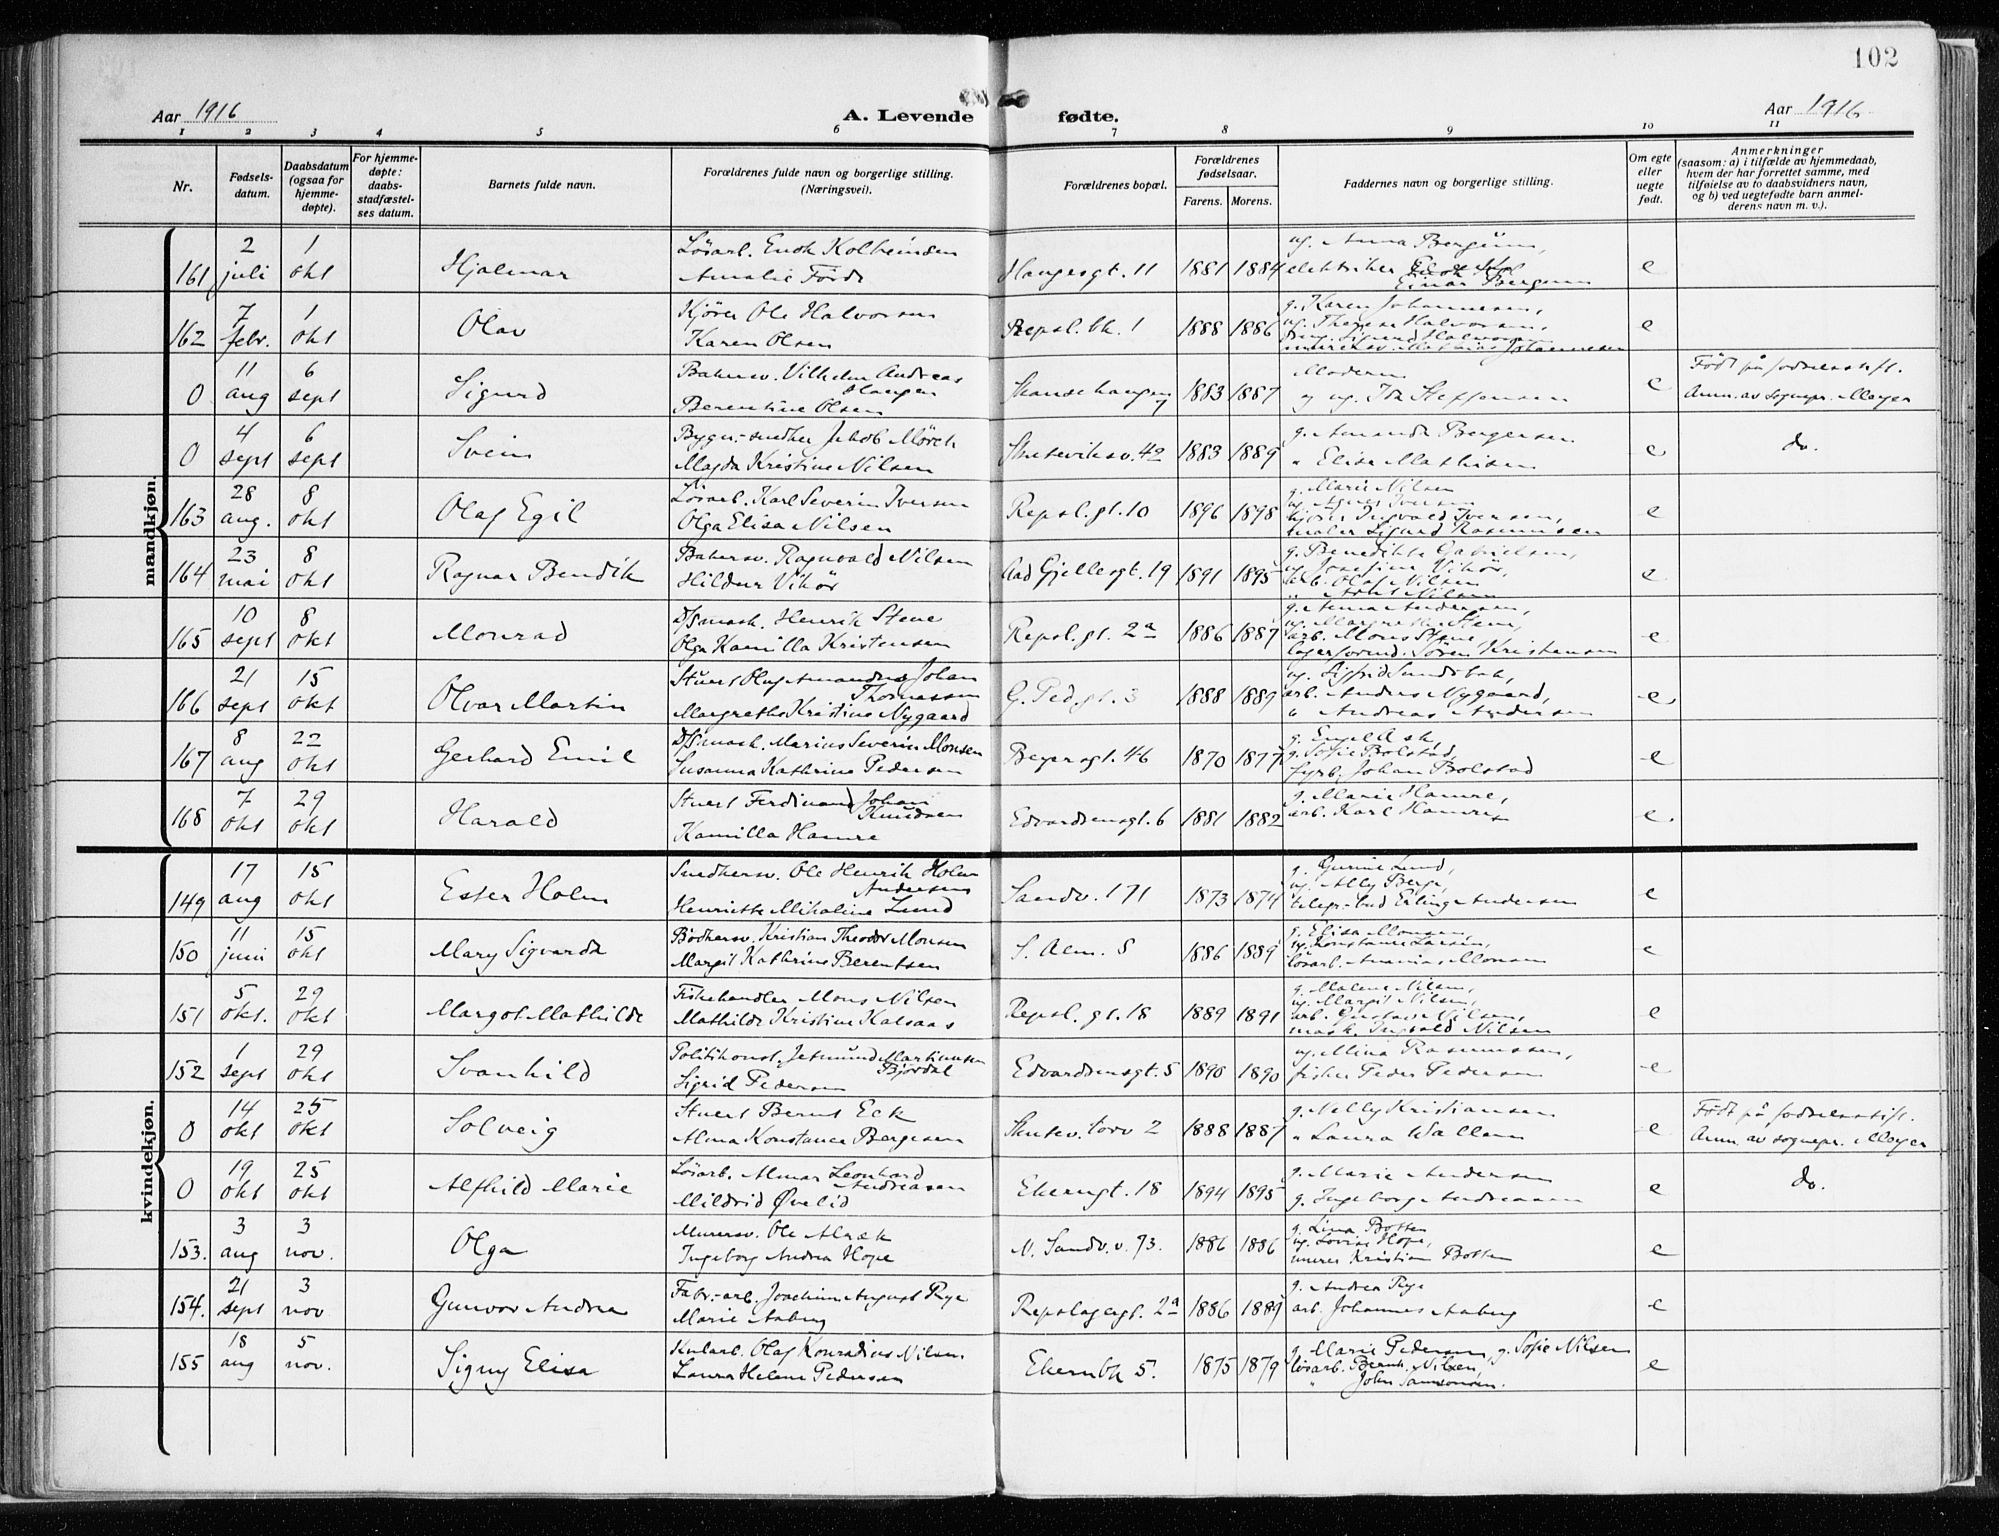 102
Aar 1916
A. Levende fødte.
Aar 1916
1 2 3 4 5 6 7. 8 9 10 11
Nr.
Fødsels-
datum.
Daabsdatum
(ogsaa for
hjemme-
døpte).
For hjemme-
døpte:
daabs-
stadfæstel-
ses datum.
Barnets fulde navn.
Forældrenes fulde navn og borgerlige stilling.
(Næringsvei).
Forældrenes bopæl.
Forældrenes
fødselsaar.
Farens. Morens.
Faddernes navn og borgerlige stilling.
Om egte
eller
uegte
født.
Anmerkninger
(saasom: a) i tilfælde av hjemmedaab,
hvem der har forrettet samme, med
tilføielse av to daabsvidners navn,
og b) ved uegtefødte barn anmel-
derens navn m. v.).
mandkjøn.
161 2 juli 1 okt Hjalmar
Løsarb. Endh Kolbeinsen
Amalie Førde
Haugesgt. 11 1881 1884
ug. Anna Bergum,
elektriker
Einar Bergum
e
162 7 febr. 1 okt Olav
Kjører Ole Halvorsen
Karen Olsen
Repsl.bk. 1 1888 1886
g. Karen Johannesen,
ug. Therese Halvorsen,
Sigurd Halvorsen
murersv. Mathias Johannesen
e
0 11 aug 6 sept Sigurd
Bakersv. Vilhelm Andreas
Haugen
Berentine Olsen
Skansehaugen 1883 1887
Moderen
og ug. Ida Steffensen
e
Født på fødselsstift.
Anm. av sognepr. Meyer
0 4 sept 6 sept Svein
Bygn.-snedker Jakob Mörch
Magda Kristine Nilsen
Skuteviksv. 42 1883 1889
g. Amanda Bergersen
" Elise Mathisen
e
do.
163 28 aug. 8 okt Olaf Egil
Løsarb. Karl Severin Iversen
Olga Elisa Nilsen
Repsl.gt. 10 1896 1898
g. Marie Nilsen
ug. Agnes Iversen
kjører Ingvald Iversen,
maler Sigurd Rasmussen
e
164 23 mai 8 okt Ragnar Bendik
Bakersv. Ragnvald Nilsen
Hildur Vikør
Aad Gjellesgt. 19 1891 1895
g. Benedikte Gabrielsen,
ug. Josefine Vikør,
arb. Olaf Nilsen
e
165 10 sept 8 okt Monrad
D/S mask. Henrik Stene
Olga Kamilla Kristensen
Repsl.gt. 2a 1886 1887
g. Anna Andersen,
ug. Margrethe Stene,
arb. Mons Stene
lagerformd. Søren Kristensen
e
166 21 sept 15 okt Olvar Martin
Stuert Olaf Amandus Johan
Thomassen
Margrethe Kristine Nygaard
G. Ped.gt. 3 1888 1889
ug. Sigfrid Sundsbak,
arb. Anders Nygaard,
" Andreas Andersen
e
167 8 aug 22 okt Gerhard Emil
D/S mask. Marius Severin Monsen
Susanna Kathrine Pedersen
Beyersgt. 46 1870 1877
g. Engel Ask,
g. Sofie Bolstad,
fyrb. Johan Bolstad
e
168 7 okt 29 okt Harald
Stuert Ferdinand Johan
Knudsen
Kamilla Hamre
Edvardsensgt. 6 1881 1882
g. Marie Hamre,
arb. Karl Hamre
e
kvindekjøn.
149 17 aug 15 okt Ester Holm
Snedkersv. Ole Henrik Holm
Andersen
Henriette Mikaline Lund
Sandv. 171 1873 1874
g. Gurine Lund,
ug. Ally Berge,
telegr.-bud Erling Andersen
e
150 11 juni 15 okt Mary Sigvarda
Bødkersv. Kristian Theodor Monsen
Margit Kathrine Berentsen
S. Alm. 8 1886 1889
g. Elisa Monsen,
ug. Konstanse Larsen,
løsarb. Ananias Monsen
e
151 5 okt. 29 okt Margot Mathilde
Fiskehandler Mons Nilsen
Mathilde Kristine Kalsaas
Repsl.gt. 18 1889 1891
g. Malene Nilsen,
ug. Margit Nilsen,
arb. Gustav Nilsen,
mask. Ingvald Nilsen
e
152 1 sept 29 okt Svanhild
Politikonst. Jetmund Martinusen
Bjørdal
Sigrid Pedersen
Edvardsensgt. 5 1890 1890
ug. Mina Rasmussen,
fisker Peder Pedersen
e
0 14 okt 25 okt Solveig
Stuert Bernt Eck
Alma Konstance Bergesen
Skutev. torv 2 1888 1887
g. Nelly Kristiansen
" Laura Wallem
e
Født på fødselsstift.
Anm. av sognepr. Meyer
0 19 okt 25 okt Alfhild Marie
Løsarb. Almar Leonhard
Andreasen
Mildrid Øvelid
Ekerngt. 18 1894 1895
g. Marie Andersen
g. Ingeborg Andreasen
e
do.
153. 3 aug 3 nov. Olga
Murersv. Ole Alræk
Ingeborg Andrea Hope
N. Sandv.v. 73. 1886 1886
g. Lina Botten
ug. Lovise Hope,
murer Kristian Botten
e
154. 21 sept 3 nov Gunvor Andrea
Fabr.-arb. Joachim August Rye
Marie Aaberg
Repslagergt. 2a 1886 1889
g. Andrea Rye
arb. Johannes Aaberg
e
155 18 aug 5 nov. Signy Elisa
Kularb. Olaf Konradius Nilsen
Laura Helene Pedersen
Ekernbk 5. 1875 1879
g. Marie Pedersen, g. Sofie Nilsen
løsarb. Bernh. Nilsen,
" John Samsonsen.
e